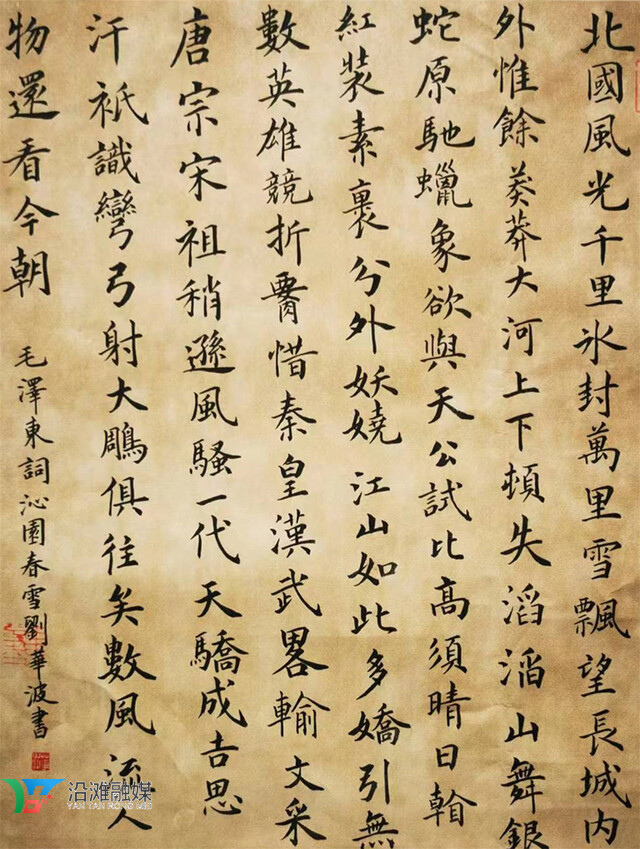 北國風光千里氷封萬里雪飄望長城内
外惟餘莽莽大河上下頓失滔滔山舞銀
蛇原馳蠟象欲與天公試比高須晴日看
紅裝素裹分外妖嬈江山如此多嬌引無
數英雄競折腰惜秦皇漢武畧輸文采
唐宗宋祖稍遜風騷一代天驕成吉思
汗祇識彎弓射大雕俱往矣數風流人
物還看今朝
毛澤東詞沁園春雪劉華波書
沿滩融媒
YAN TAN RONG MEI